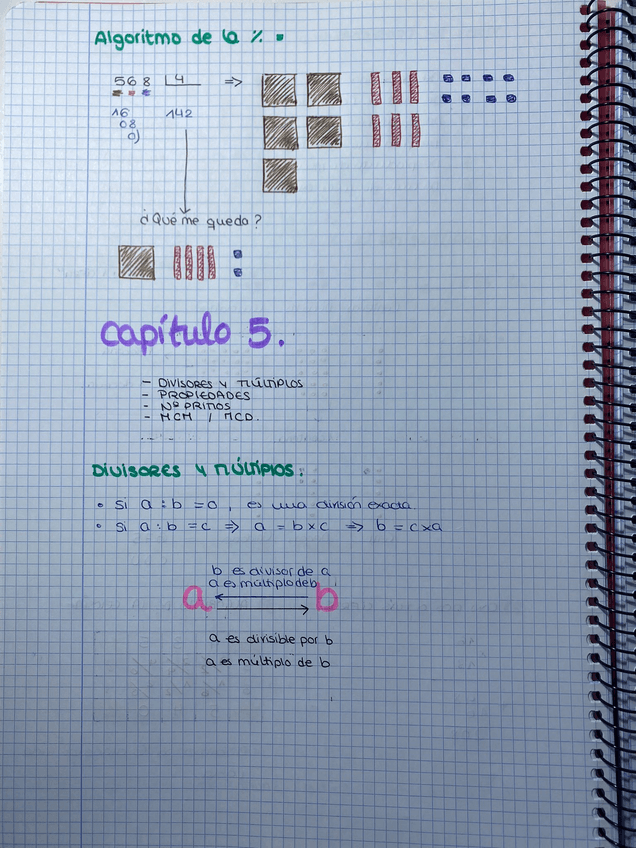 Algoritmo de la %
568 4 =>
16 142
08
0)
¿Qué me quedo?
Capítulo 5.
- DIVISORES Y MÚLTIPLOS
- PROPIEDADES
- Nº PRIMOS
- MCM / MCD.
DIVISORES Y MÚLTIPLOS:
• Si a : b = 0, es una división exacta.
• Si a : b = c => a = b x c => b = c x a
b es divisor de a
a es múltiplo de b
a b
a es divisible por b
a es múltiplo de b